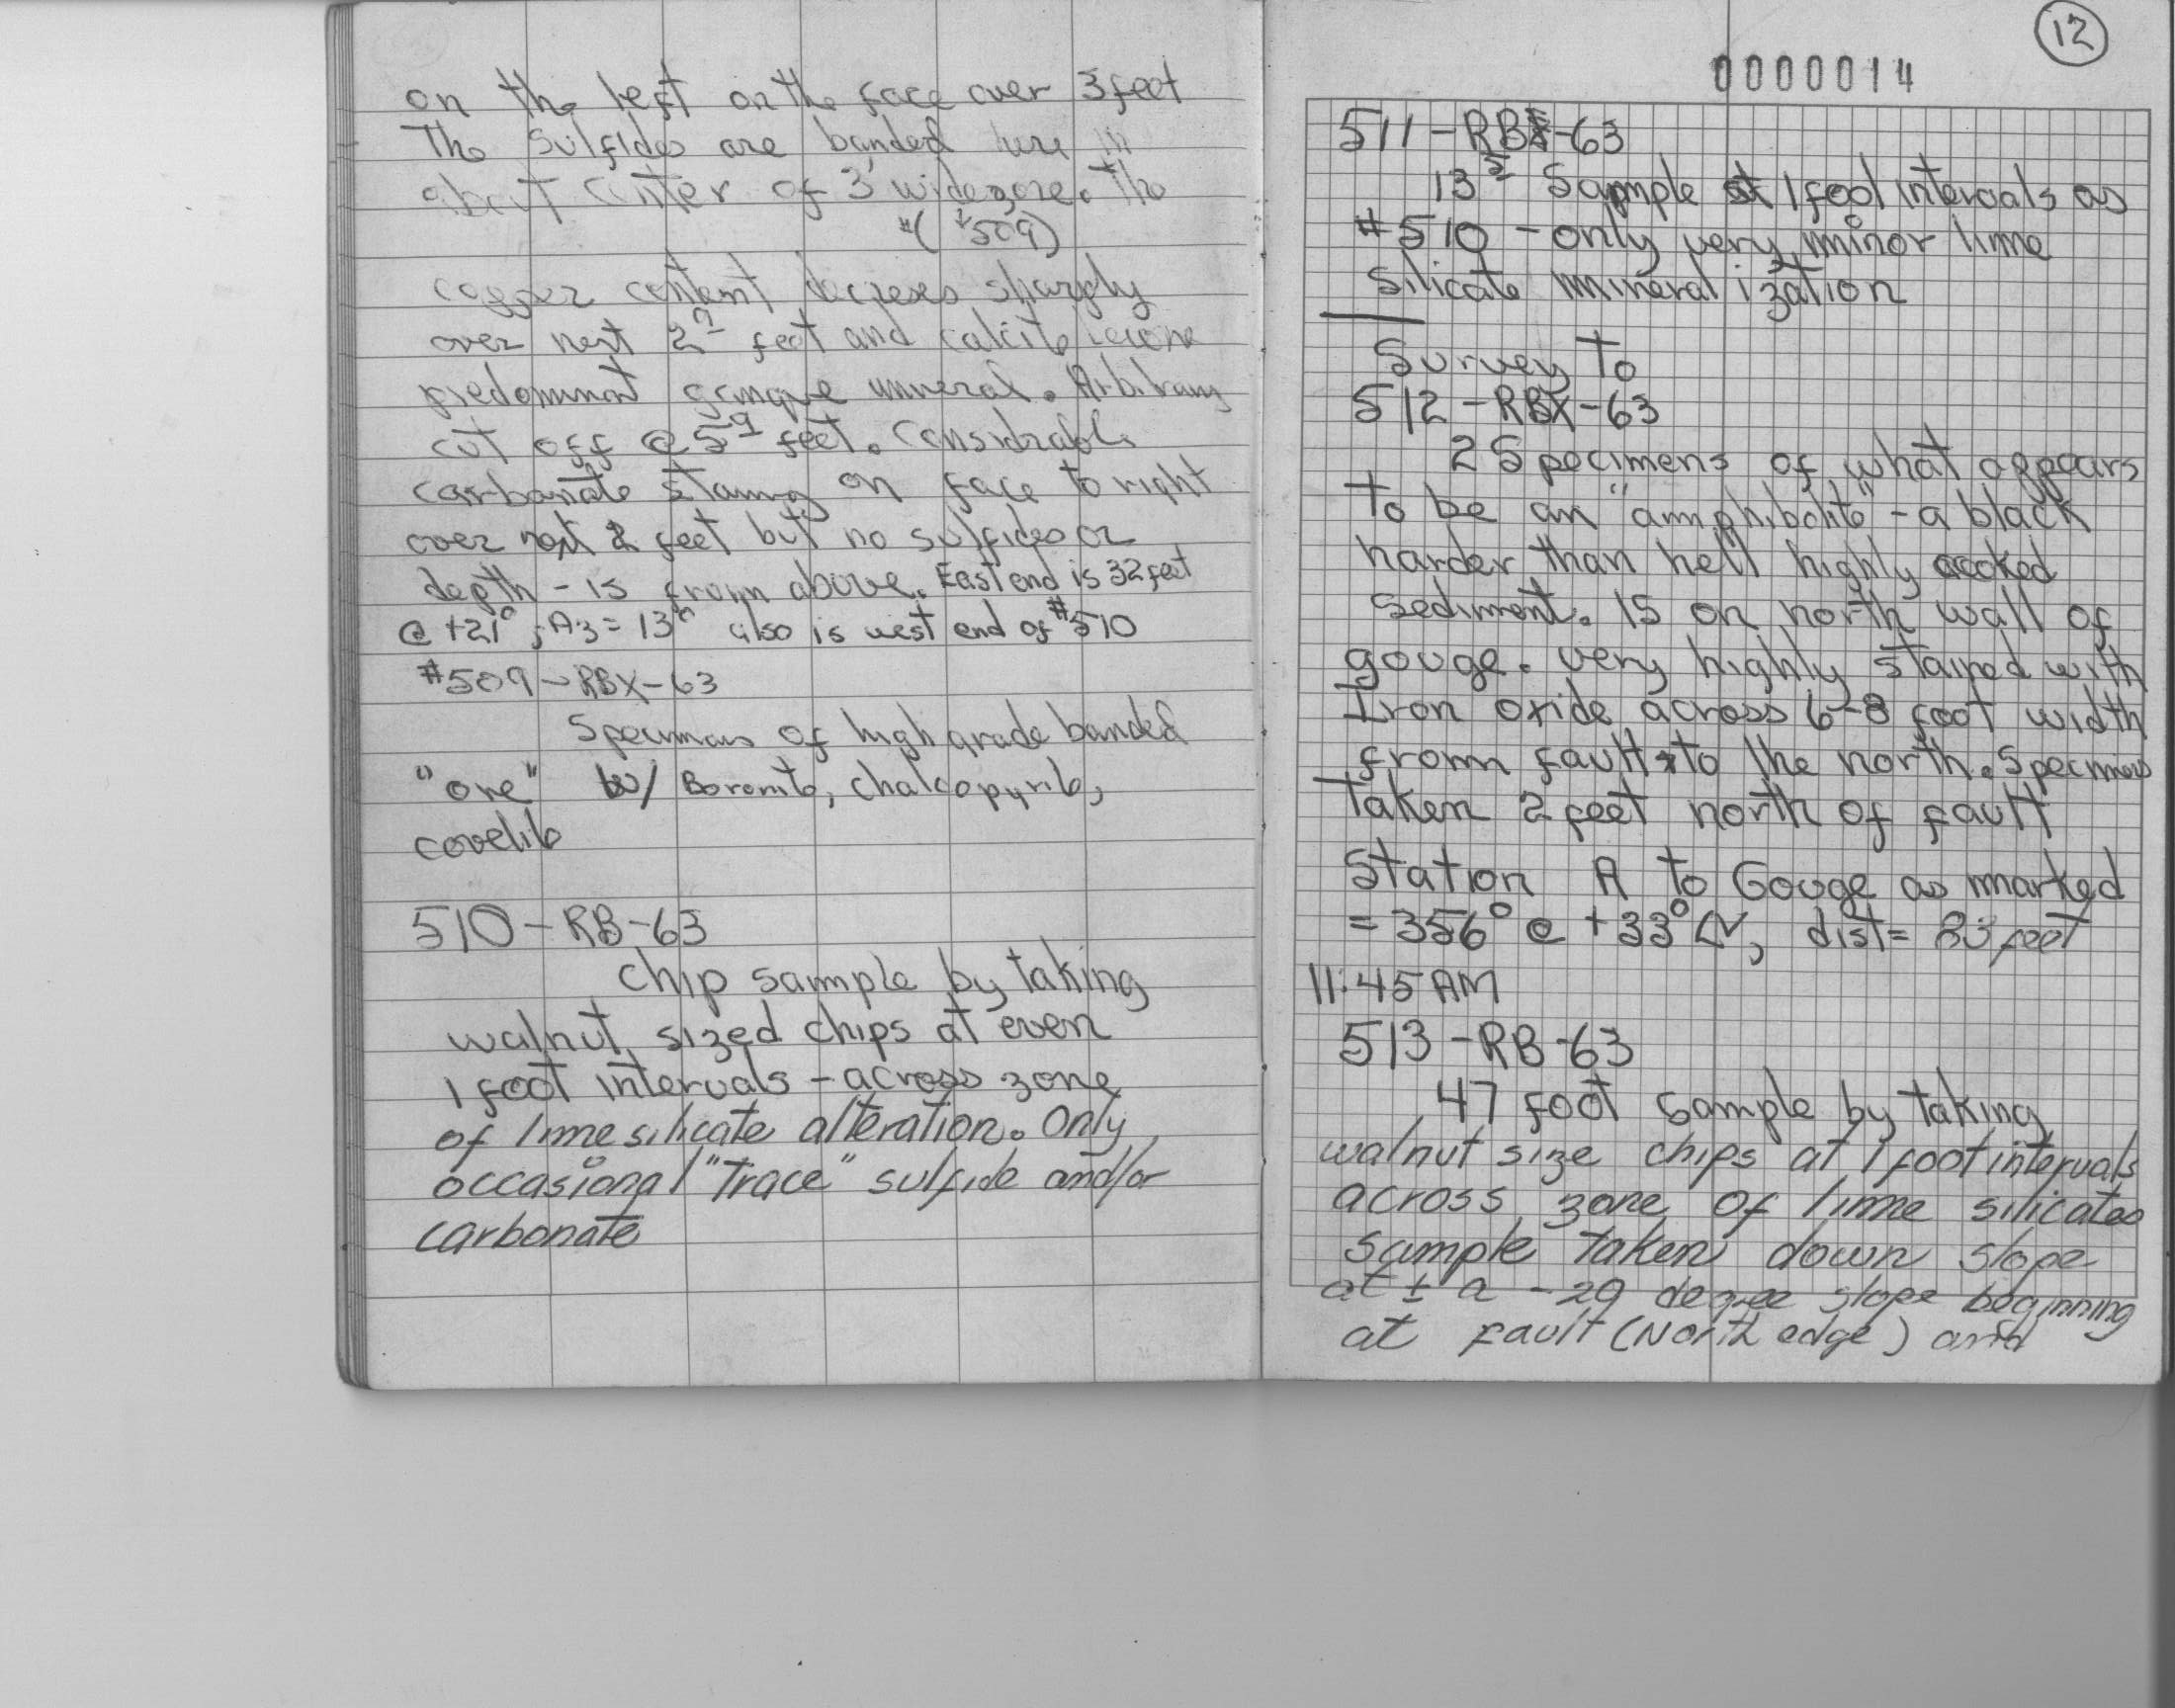 on the left on the face over 3 feet
The sulfides are banded here in
about center of 3' wide zone. The
"( #509)
copper content decreses sharply
over next 2⁹ feet and calcite become
predominat gangue mineral. Arbitrary
cut off @ 5⁹ feet. Considrable
carbonate staing on face to right
over next 2 feet but no sulfides or
depth - is from above. East end is 32 feet
@ +21°; Az = 13° also is west end of #510
#509-RBX-63
Specimens of high grade banded
"ore" w/ Boronite, chalcopyrite,
covelite
510-RB-63
chip sample by taking
walnut sized chips at even
1 foot intervals - across zone
of lime silicate alteration. Only
occasional "Trace" sulfide and/or
carbonate
12
0000014
511-RB-63
13⁵ Sample at 1 foot intervals as
#510 - only very minor lime
silicate mineralization
Survey To
512-RBX-63
2 Specimens of what appears
to be an "amphibolite" - a black
harder than hell highly cooked
sediment. Is on north wall of
gouge. very highly stained with
Iron oxide across 6-8 foot width
from fault to the north. Specimens
Taken 2 feet north of fault
Station A to Gouge as marked
= 356° @ +33° dist = 83 feet
11:45 AM
513-RB-63
47 foot sample by taking
walnut size chips at 1 foot intervals
across zone of lime silicates
sample taken down slope
at ± a -29 degree slope beginning
at fault (North edge) and